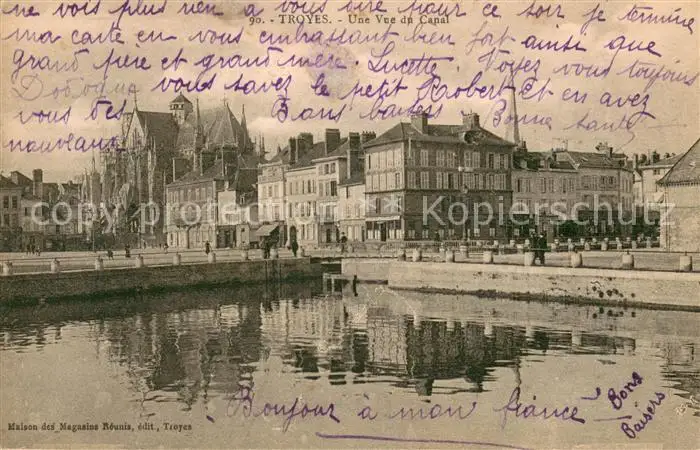 ne vois plus rien a vous dire pour ce soir je termine
90. - TROYES. - Une Vue du Canal
ma carte en vous embrassant bien fort ainsi que
grand père et grand mère. Lucette. Voyez vous toujours
vous savez le petit Robert et en avez
vous des Bons baisers Bonne santé
nouveaux
copyright watermark
Bonjour à mon fiancé Bons
Baisers
Maison des Magasins Réunis, édit., Troyes